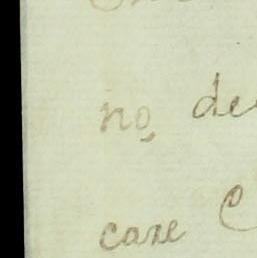 no, de
care C